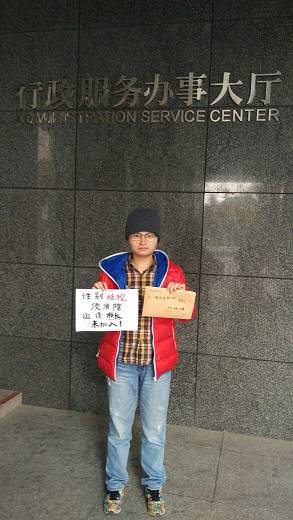 行政服务办事大厅
ADMINISTRATION SERVICE CENTER
性别歧视
须消除
邀请校长
来加入!